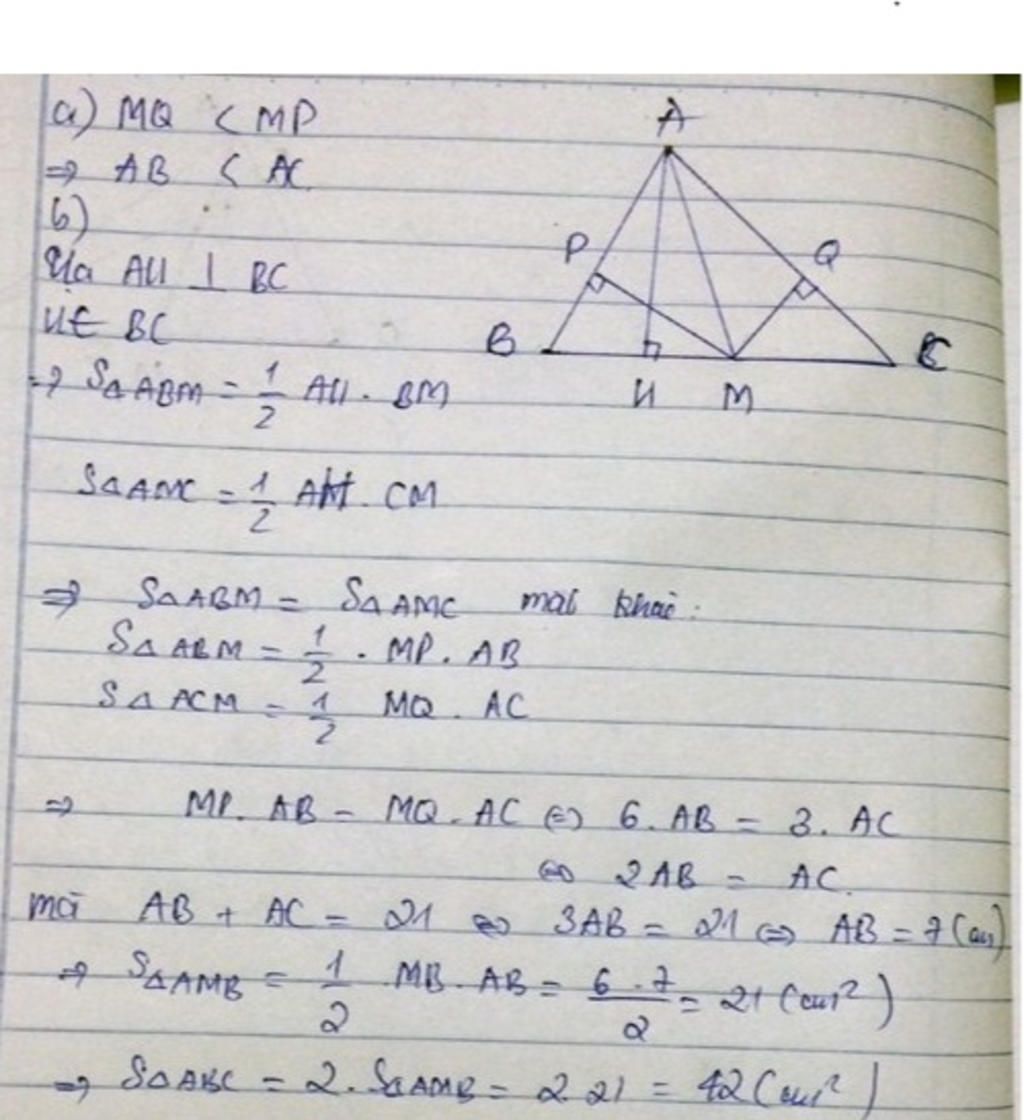 a) MQ < MP
⇒ AB < AC
b)
Hạ AH ⊥ BC
H ∈ BC
⇒ S△ABM = 1/2 AH . BM
S△AMC = 1/2 AH . CM
⇒ S△ABM = S△AMC mặt khác :
S△ABM = 1/2 . MP . AB
S△ACM = 1/2 MQ . AC
⇒ MP . AB = MQ . AC ⇔ 6 . AB = 3 . AC
⇔ 2AB = AC.
mà AB + AC = 21 ⇔ 3AB = 21 ⇔ AB = 7 (cm)
⇒ S△AMB = 1/2 . MB . AB = 6 . 7/2 = 21 (cm²)
⇒ S△ABC = 2 . S△AMB = 2 . 21 = 42 (cm²)
A
P
Q
B
C
H
M